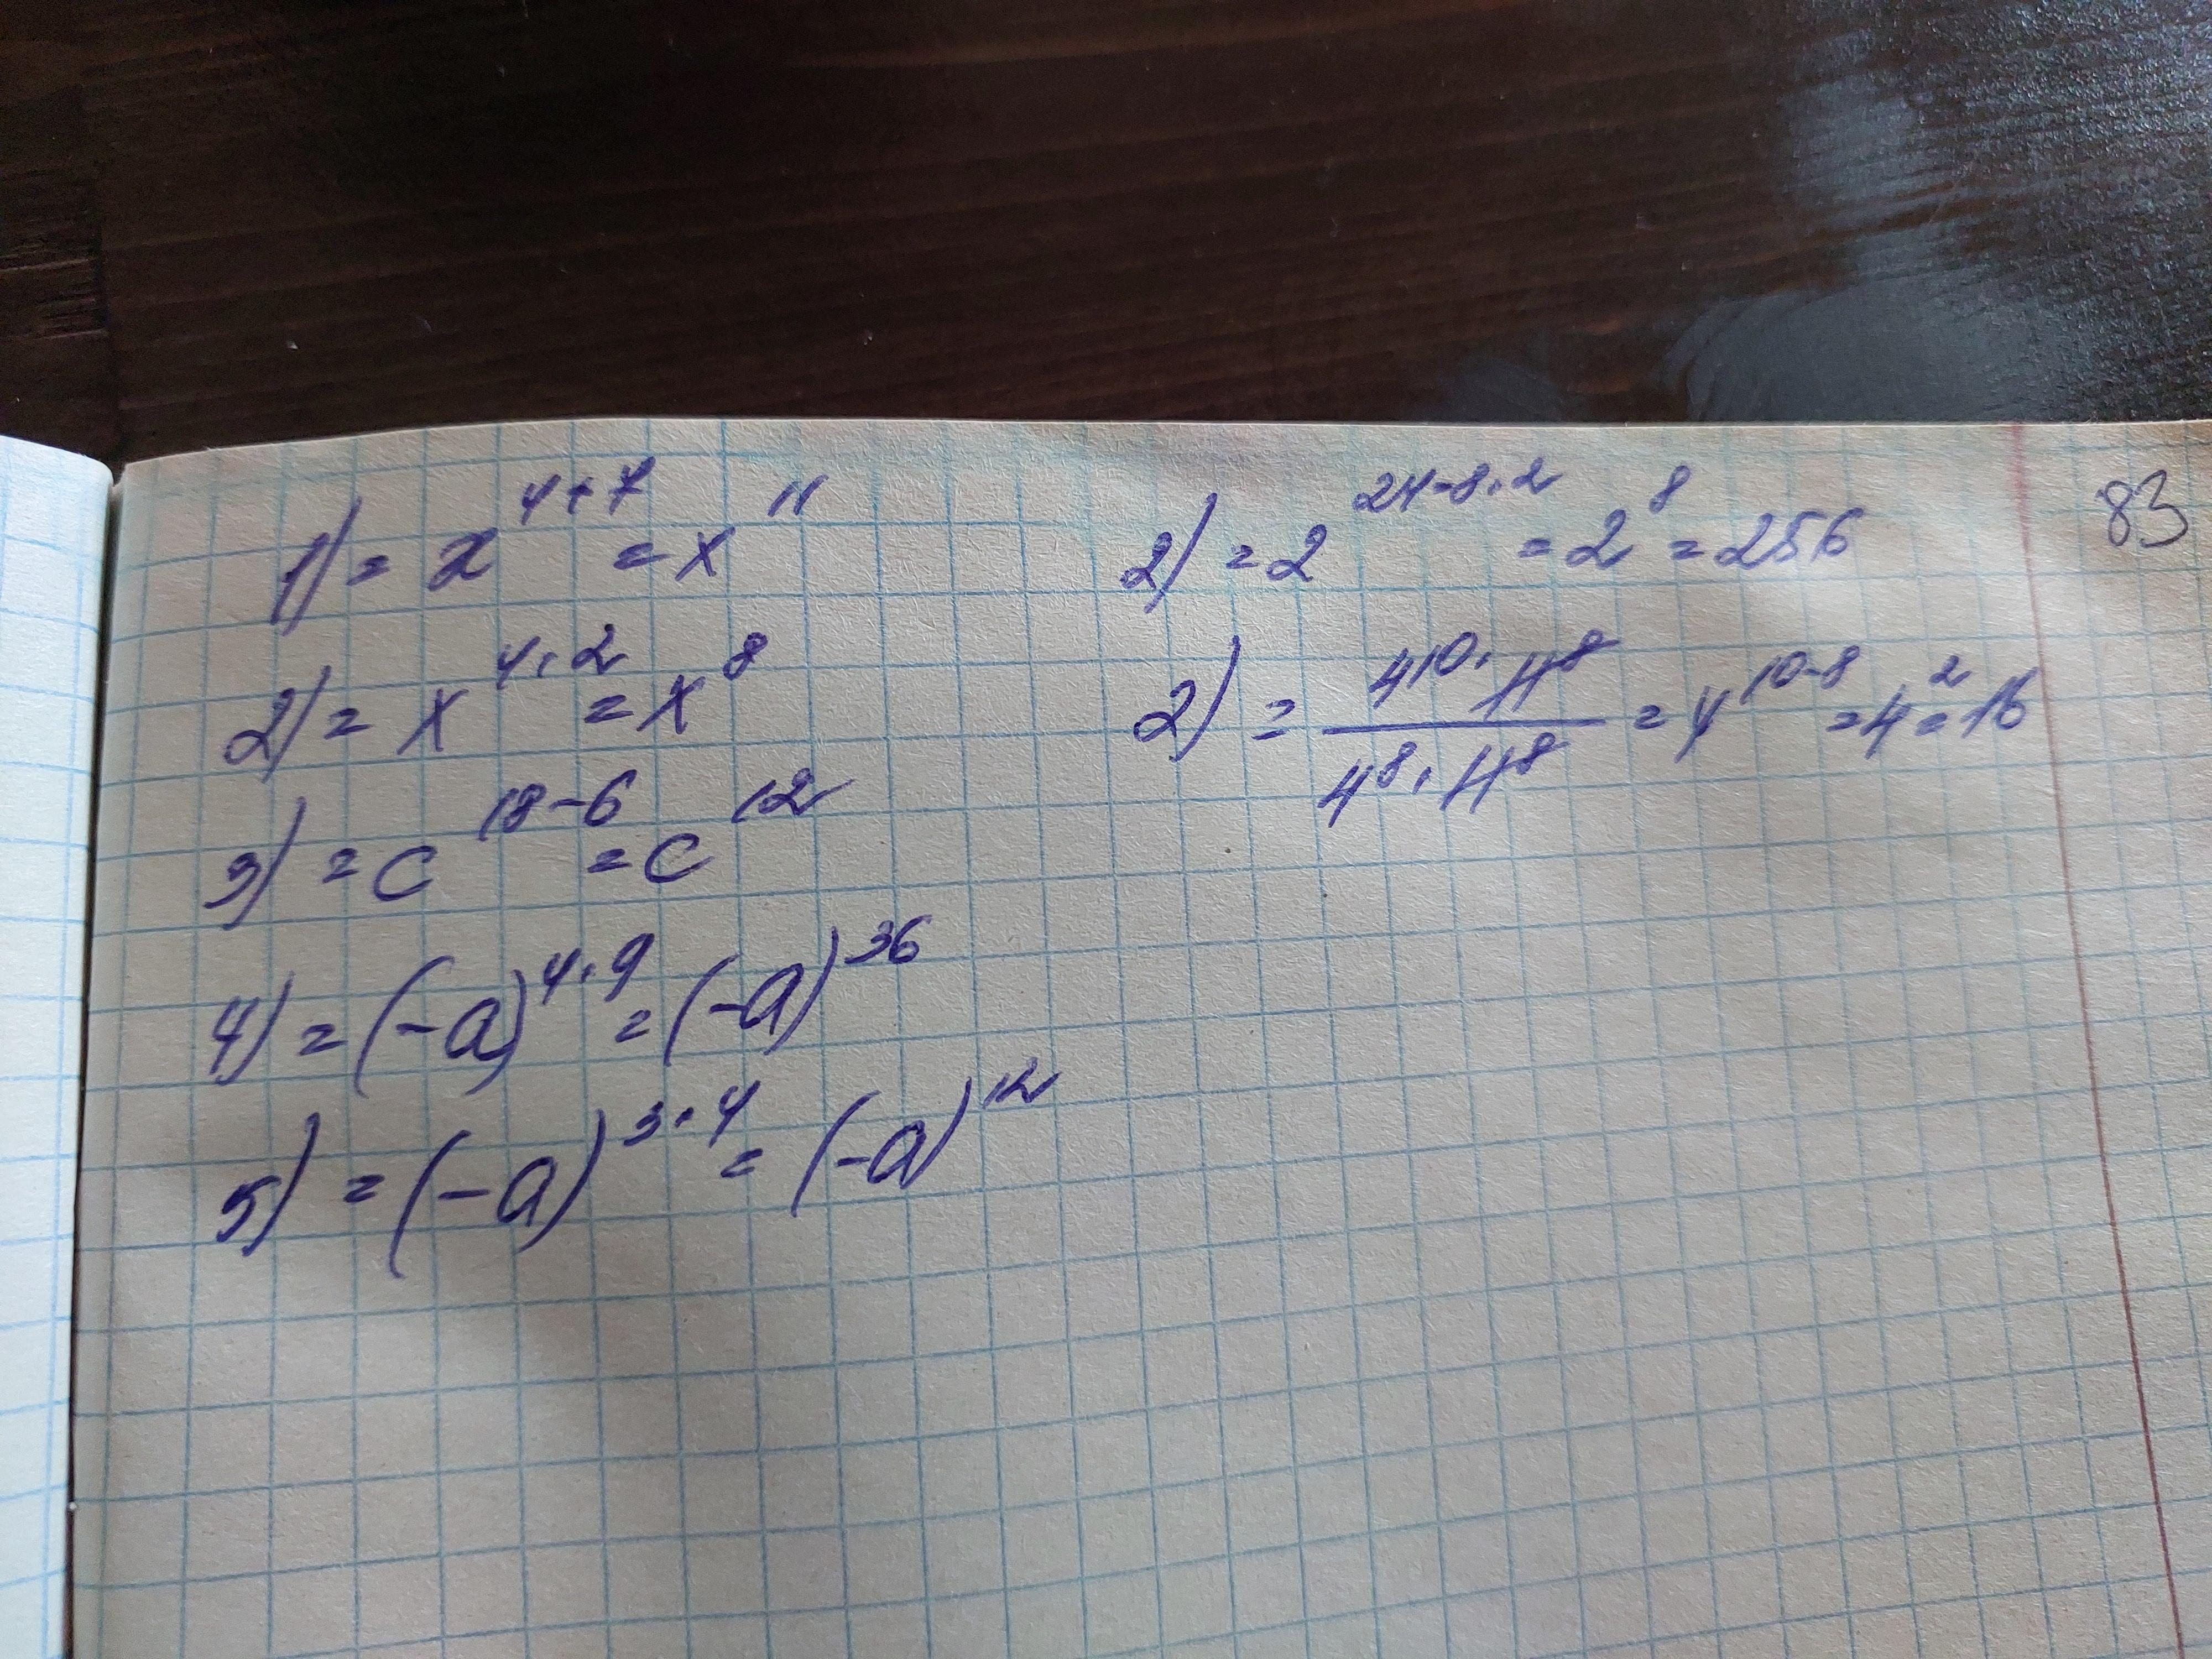 1) = x^{4+7} = x^{11}
2) = x^{4·2} = x^8
3) = c^{18-6} = c^{12}
4) = (-a)^{4·9} = (-a)^{36}
5) = (-a)^{3·4} = (-a)^{12}
2) = 2^{24-8·2} = 2^8 = 256
2) = \frac{4^{10} · 11^8}{4^8 · 11^8} = 4^{10-8} = 4^2 = 16
83